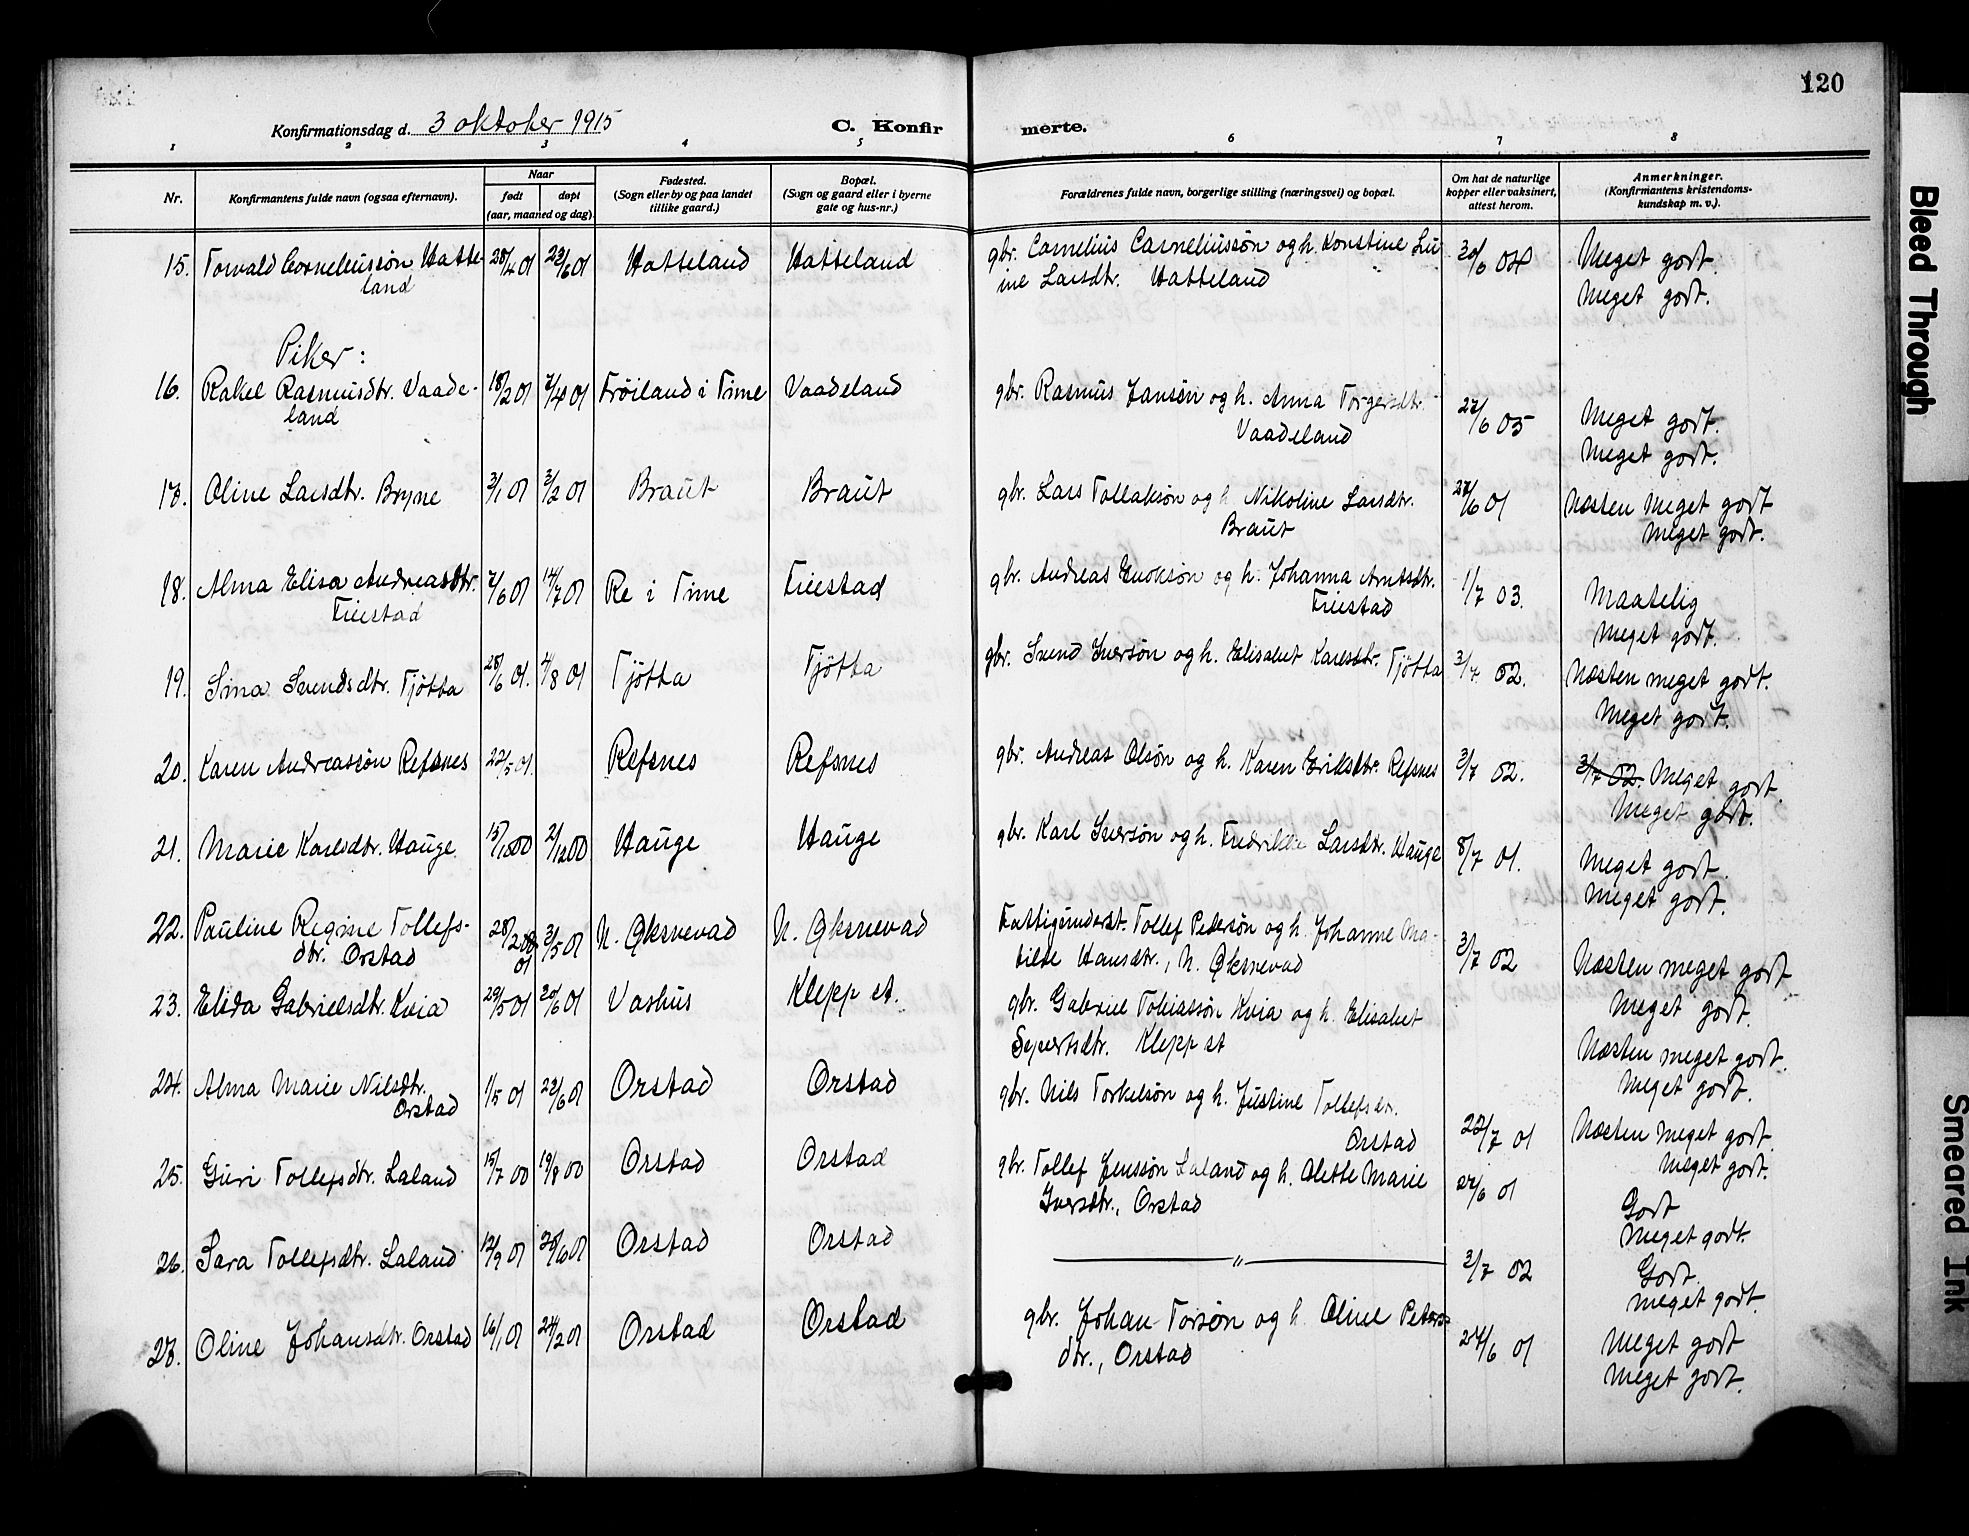 120
Konfirmationsdag d. 3 oktober 1915
C. Konfir merte.
1 2 3 4 5 6 7 8
Nr. Konfirmantens fulde navn (ogsaa efternavn). Naar født døpt (aar, maaned og dag) Fødested. (Sogn eller by og paa landet tillike gaard.) Bopæl. (Sogn og gaard eller i byerne gate og hus-nr.) Forældrenes fulde navn, borgerlige stilling (næringsvei) og bopæl. Om hat de naturlige kopper eller vaksinert, attest herom. Anmerkninger. (Konfirmantens kristendomskundskap m. v.).
15. Torvald Corneliussøn Hatte- 28/4 01 23/6 01 Hatteland Hatteland gbr. Cornelius Corneliussøn og h. Konstine Lu- 30/6 04 Meget godt.
land ine Larsdtr. Hatteland Meget godt.
Piker:
16. Rakel Rasmusdtr. Vaade- 18/2 01 7/4 01 Frøiland i Time Vaadeland gbr. Rasmus Jansøn og h. Anna Torgersdtr.
land Vaadeland 27/6 05 Meget godt.
Meget godt.
17. Oline Larsdtr. Bryne 3/1 01 3/2 01 Braut Braut gbr. Lars Tollaksøn og h. Nikoline Larsdtr. 27/6 01 Næsten Meget godt
Braut Meget godt.
18. Alma Elisa Andreasdtr. 7/6 01 14/7 01 Re i Time Tiestad gbr. Andreas Enoksøn og h. Johanna Arntsdtr. 1/7 03. Maatelig
Tiestad Tiestad Meget godt.
19. Sina Svendsdtr. Tjøtta 28/6 01. 4/8 01 Tjøtta Tjøtta gbr. Svend Iversøn og h. Elisabet Karlsdtr. Tjøtta 3/7 02. Næsten meget godt.
Meget godt.
20. Karen Andreassøn Refsnes 22/5 01. Refsnes Refsnes gbr. Andreas Olsøn og h. Karen Eriksdtr. Refsnes 3/7 02. 3/7 02. Meget godt.
Meget godt.
21. Marie Karlsdtr. Hauge 15/10 00 2/12 00 Hauge Hauge gbr. Karl Iversøn og h. Fredrikke Larsdtr. Hauge 8/7 01. Meget godt.
Meget godt.
22. Pauline Regine Tollefs- 28/2 3/5 01 N. Øksnevad N. Øksnevad Fattigunderst. Tollef Pedersøn og h. Johanne Ma-
dtr. Orstad 01 tilde Hansdtr., N. Øksnevad 3/7 02 Næsten meget godt
Meget godt.
23. Elida Gabrielsdtr. Kvia 29/5 01 20/6 01 Vashus Klepp st. gbr. Gabriel Tobiassøn Kvia og h. Elisabet
Syvertsdtr. Klepp st Næsten meget godt.
Meget godt.
24. Alma Marie Nilsdtr. 1/5 01 23/6 01 Orstad Orstad gbr. Nils Torkelsøn og h. Justine Tollefsdtr.
Orstad Orstad 22/7 01 Næsten Meget godt.
Meget godt.
25. Guri Tollefsdtr. Laland 15/7 00 19/8 00 Orstad Orstad gbr. Tollef Jenssøn Laland og h. Olette Marie
Iversdtr., Orstad 27/6 01 Godt
Meget godt.
26. Sara Tollefsdtr. Laland Orstad Orstad — " — 3/7 02 Godt.
Meget godt.
27. Oline Johansdtr. Orstad 16/1 01 24/2 01 Orstad Orstad gbr. Johan Torsøn og h. Oline Peders-
dtr., Orstad 27/6 01 Meget godt
Meget godt.
Bleed Through
Smeared Ink